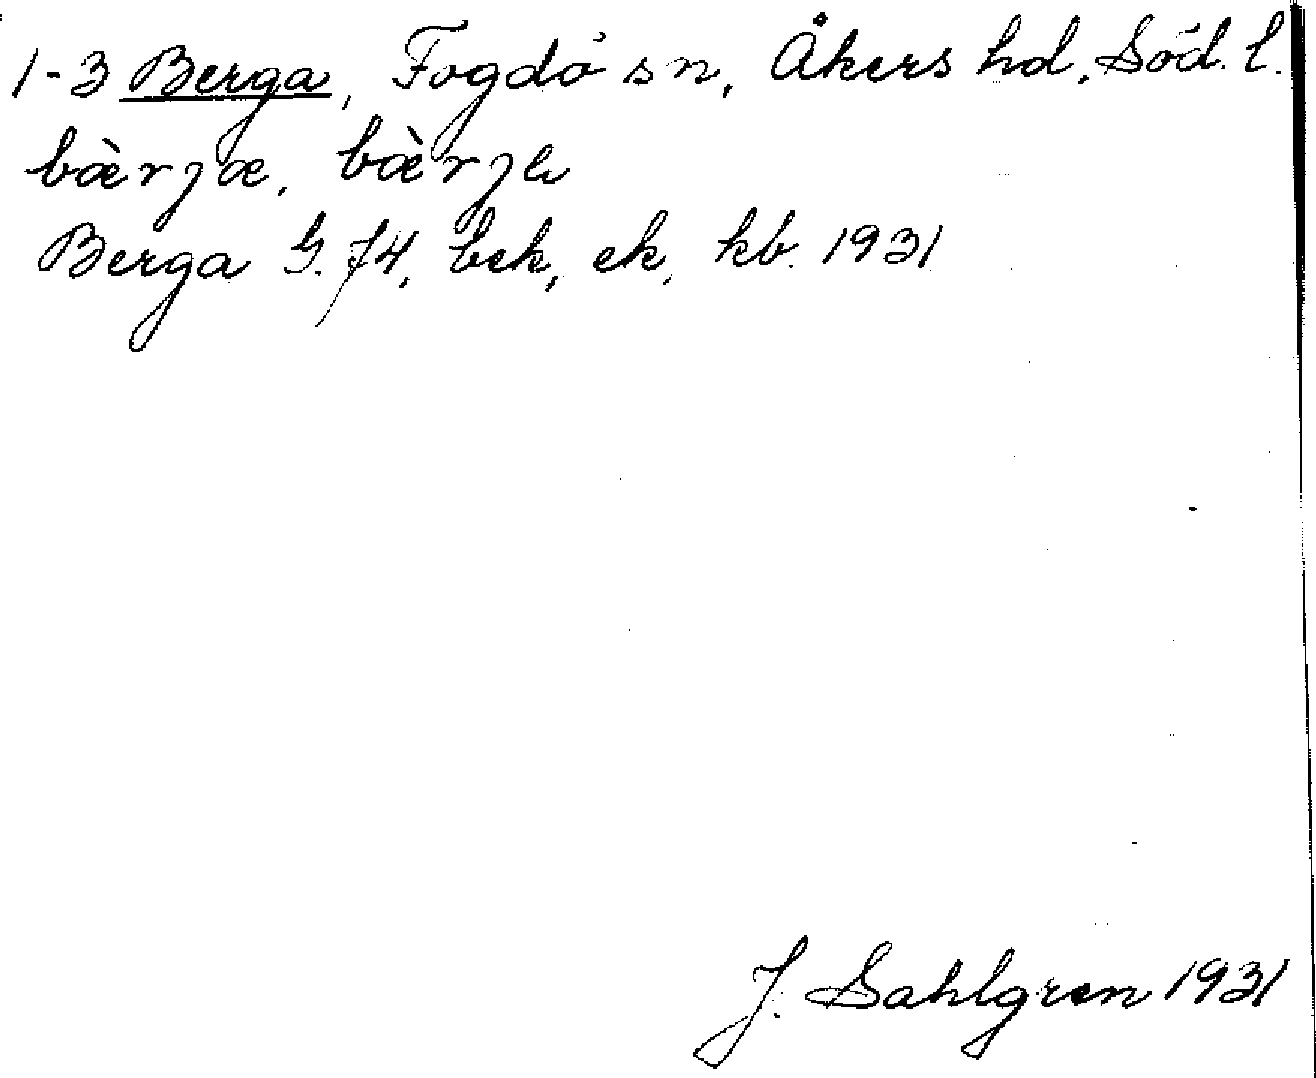 1-3 Berga, Fogdö sn, Åkers hd, Söd. l.
bæ̀rjæ, bæ̀rjɐ
Berga G. 74, bek, ek, kb. 1931
J. Sahlgren 1931